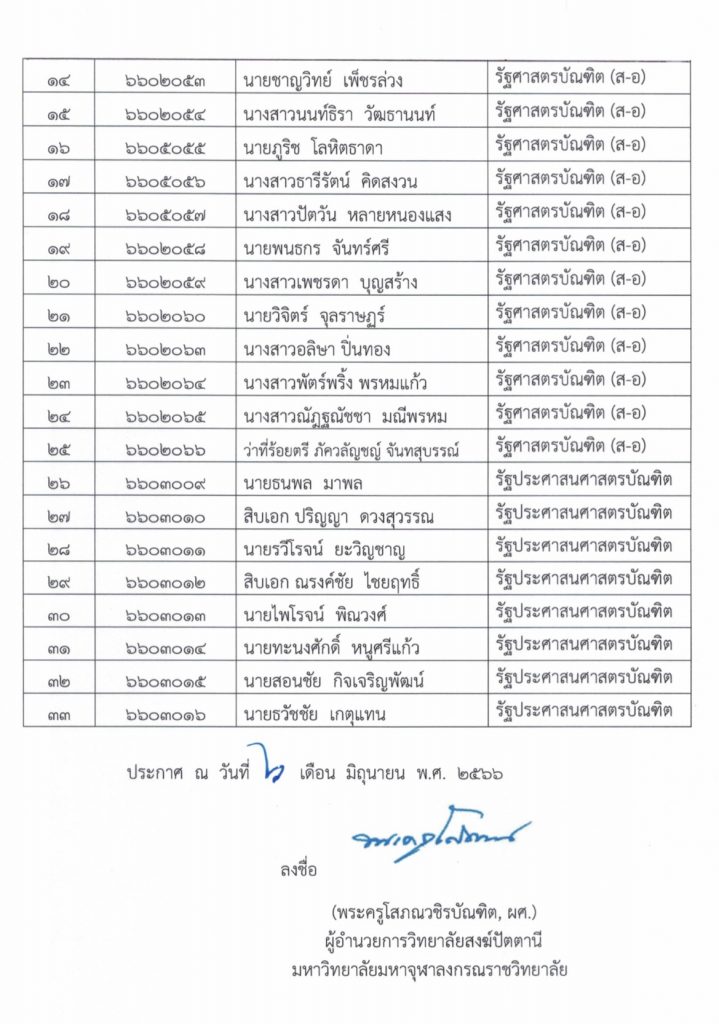 ๑๔ ๖๖๐๒๐๕๓ นายชาญวิทย์ เพ็ชรล่วง รัฐศาสตรบัณฑิต (ส-อ)
๑๕ ๖๖๐๒๐๕๔ นางสาวนนท์ธิรา วัฒธานนท์ รัฐศาสตรบัณฑิต (ส-อ)
๑๖ ๖๖๐๕๐๕๕ นายภูริช โลหิตธาดา รัฐศาสตรบัณฑิต (ส-อ)
๑๗ ๖๖๐๕๐๕๖ นางสาวธารีรัตน์ คิดสงวน รัฐศาสตรบัณฑิต (ส-อ)
๑๘ ๖๖๐๕๐๕๗ นางสาวปัตวัน หลายหนองแสง รัฐศาสตรบัณฑิต (ส-อ)
๑๙ ๖๖๐๒๐๕๘ นายพนธกร จันทร์ศรี รัฐศาสตรบัณฑิต (ส-อ)
๒๐ ๖๖๐๒๐๕๙ นางสาวเพชรดา บุญสร้าง รัฐศาสตรบัณฑิต (ส-อ)
๒๑ ๖๖๐๒๐๖๐ นายวิจิตร์ จุลราษฏร์ รัฐศาสตรบัณฑิต (ส-อ)
๒๒ ๖๖๐๒๐๖๓ นางสาวอลิษา ปิ่นทอง รัฐศาสตรบัณฑิต (ส-อ)
๒๓ ๖๖๐๒๐๖๔ นางสาวพัตร์พริ้ง พรหมแก้ว รัฐศาสตรบัณฑิต (ส-อ)
๒๔ ๖๖๐๒๐๖๕ นางสาวณัฏฐณัชชา มณีพรหม รัฐศาสตรบัณฑิต (ส-อ)
๒๕ ๖๖๐๒๐๖๖ ว่าที่ร้อยตรี ภัควลัญชญ์ จันทสุบรรณ์ รัฐศาสตรบัณฑิต (ส-อ)
๒๖ ๖๖๐๓๐๐๙ นายธนพล มาพล รัฐประศาสนศาสตรบัณฑิต
๒๗ ๖๖๐๓๐๑๐ สิบเอก ปริญญา ดวงสุวรรณ รัฐประศาสนศาสตรบัณฑิต
๒๘ ๖๖๐๓๐๑๑ นายรวีโรจน์ ยะวิญชาญ รัฐประศาสนศาสตรบัณฑิต
๒๙ ๖๖๐๓๐๑๒ สิบเอก ณรงค์ชัย ไชยฤทธิ์ รัฐประศาสนศาสตรบัณฑิต
๓๐ ๖๖๐๓๐๑๓ นายไพโรจน์ พิณวงศ์ รัฐประศาสนศาสตรบัณฑิต
๓๑ ๖๖๐๓๐๑๔ นายทะนงศักดิ์ หนูศรีแก้ว รัฐประศาสนศาสตรบัณฑิต
๓๒ ๖๖๐๓๐๑๕ นายสอนชัย กิจเจริญพัฒน์ รัฐประศาสนศาสตรบัณฑิต
๓๓ ๖๖๐๓๐๑๖ นายธวัชชัย เกตุแทน รัฐประศาสนศาสตรบัณฑิต
ประกาศ ณ วันที่ ๖ เดือน มิถุนายน พ.ศ. ๒๕๖๖
ลงชื่อ
(พระครูโสภณวชิรบัณฑิต, ผศ.)
ผู้อำนวยการวิทยาลัยสงฆ์ปัตตานี
มหาวิทยาลัยมหาจุฬาลงกรณราชวิทยาลัย